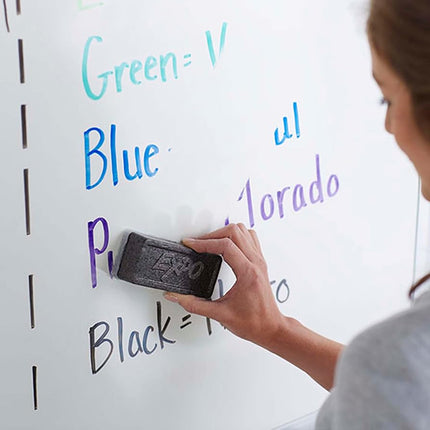 Green = V
Blue ul
P Morado
EXPO
Black = o